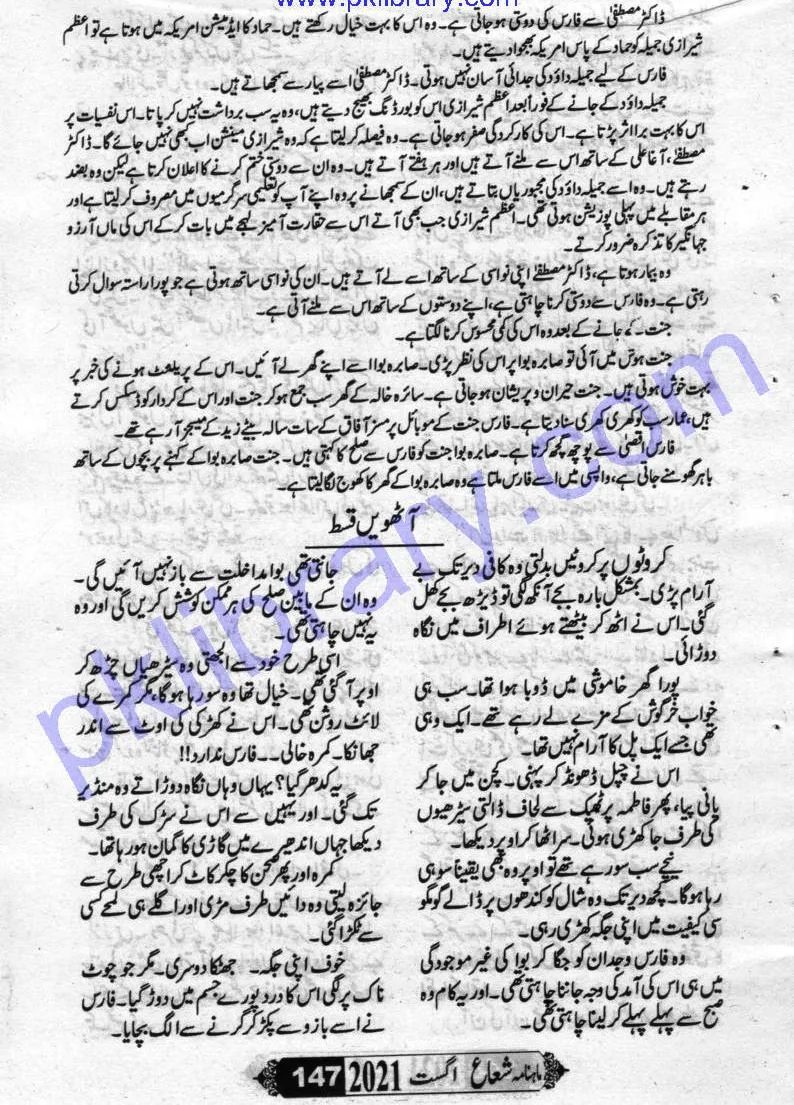 www.pklibrary.com
ڈاکٹر مصطفیٰ سے فارس کی دوستی ہوجاتی ہے۔ وہ اس کا بہت خیال رکھتے ہیں۔ حماد کا ایڈمیشن امریکہ میں ہوتا ہے تو اعظم
شیرازی جمیلہ کو حماد کے پاس امریکہ بھجوا دیتے ہیں۔
فارس کے لیے جمیلہ داؤد کی جدائی آسان نہیں ہوتی۔ ڈاکٹر مصطفیٰ اسے پیار سے سمجھاتے ہیں۔
جمیلہ داؤد کے جانے کے فوراً بعد اعظم شیرازی اس کو بورڈنگ بھیج دیتے ہیں، وہ یہ سب برداشت نہیں کرپاتا۔ اس نفسیات پر
اس کا بہت برا اثر پڑتا ہے۔ اس کی کارکردگی صفر ہوجاتی ہے۔ وہ فیصلہ کرلیتا ہے کہ وہ شیرازی مینشن اب کبھی نہیں جائے گا۔ ڈاکٹر
مصطفےٰ، آغا علی کے ساتھ اس سے ملنے آتے ہیں اور ہر ہفتے آتے ہیں۔ وہ ان سے دوستی ختم کرنے کا اعلان کرتا ہے لیکن وہ بضد
رہتے ہیں۔ وہ اسے جمیلہ داؤد کی مجبوریاں بتاتے ہیں، ان کے سمجھانے پر وہ اپنے آپ کو تعلیمی سرگرمیوں میں مصروف کرلیتا ہے اور
ہر مقابلے میں پہلی پوزیشن ہوتی تھی۔ اعظم شیرازی جب بھی آتے اس سے حقارت آمیز لہجے میں بات کرکے اس کی ماں آرزو
جہانگیر کا تذکرہ ضرور کرتے۔
وہ بیمار ہوتا ہے، ڈاکٹر مصطفےٰ اپنی نواسی کے ساتھ اسے لے آتے ہیں۔ ان کی نواسی ساتھ ہوتی ہے جو پورا راستہ سوال کرتی
رہتی ہے۔ وہ فارس سے دوستی کرنا چاہتی ہے، اپنے دوستوں کے ساتھ اس سے ملنے آتی ہے۔
جنت کے جانے کے بعد وہ اس کی کمی محسوس کرنا لگتا ہے۔
جنت ہوش میں آئی تو صابرہ بوا پر اس کی نظر پڑی۔ صابرہ بوا اسے اپنے گھر لے آئیں۔ اس کے پریگننٹ ہونے کی خبر پر
بہت خوش ہوتی ہیں۔ جنت حیران و پریشان ہوجاتی ہے۔ سائرہ خالہ کے گھر سب جمع ہو کر جنت اور اس کے کردار کو ڈسکس کرتے
ہیں، عمار سب کو کھری کھری سنا دیتا ہے۔ فارس جنت کے موبائل پر مسز آفاق کے سات سالہ بیٹے زید کے مسیجز آرہے تھے۔
فارس اقصیٰ سے پوچھ گچھ کرتا ہے۔ صابرہ بوا جنت کو فارس سے صلح کا کہتی ہیں۔ جنت صابرہ بوا کے کہنے پر بچوں کے ساتھ
باہر گھومنے جاتی ہے، واپسی میں اسے فارس ملتا ہے وہ صابرہ بوا کے گھر کا کھوج لگا لیتا ہے۔
آٹھویں قسط
کروٹوں پر کروٹیں بدلتی وہ کافی دیر تک بے
آرام پڑی۔ بمشکل بارہ بجے آنکھ لگی تو ڈیڑھ بجے کھل
گئی۔ اس نے اٹھ کر بیٹھتے ہوئے اطراف میں نگاہ
دوڑائی۔
پورا گھر خاموشی میں ڈوبا ہوا تھا۔ سب ہی
خواب خرگوش کے مزے لے رہے تھے۔ ایک وہی
تھی جسے ایک پل کا آرام نہیں تھا۔
اس نے چپل ڈھونڈ کر پہنی۔ کچن میں جا کر
پانی پیا، پھر فاطمہ پر ٹھیک سے لحاف ڈالتی سیڑھیوں
کی طرف جا کھڑی ہوئی۔ سر اٹھا کر اوپر دیکھا۔
نیچے سب سو رہے تھے تو اوپر وہ بھی یقیناً سو ہی
رہا ہوگا۔ کچھ دیر تک وہ شال کو کندھوں پر ڈالے گومگو
سی کیفیت میں اپنی جگہ کھڑی رہی۔
وہ فارس وجدان کو جگا کر بوا کی غیر موجودگی
میں ہی اس کی آمد کی وجہ جاننا چاہتی تھی۔ اور یہ کام وہ
صبح سے پہلے پہلے کرلینا چاہتی تھی۔
جانتی تھی بوا مداخلت سے باز نہیں آئیں گی۔
وہ ان کے مابین صلح کی ہر ممکن کوشش کریں گی اور وہ
یہ نہیں چاہتی تھی۔
اسی طرح خود سے الجھتی وہ سیڑھیاں چڑھ کر
اوپر آگئی تھی۔ خیال تھا وہ سو رہا ہوگا، مگر کمرے کی
لائٹ روشن تھی۔ اس نے کھڑکی کی اوٹ سے اندر
جھانکا۔ کمرہ خالی۔۔ فارس ندارد!!
یہ کدھر گیا؟ یہاں وہاں نگاہ دوڑاتے وہ منڈیر
تک گئی۔ اور یہیں سے اس نے سڑک کی طرف
دیکھا جہاں اندھیرے میں گاڑی کا گمان ہو رہا تھا۔
کمرہ اور پھر صحن کا چکر کاٹ کر اچھی طرح سے
جائزہ لیتی وہ دائیں طرف مڑی اور اگلے ہی لمحے کسی
سے ٹکرا گئی۔
خوف اپنی جگہ۔ جھٹکا دوسری۔ مگر جو چوٹ
ناک پر لگی اس کا درد پورے جسم میں دوڑ گیا۔ فارس
نے اسے بازو سے پکڑ کر گرنے سے الگ بچایا۔
ماہنامہ شعاع اگست 2021 147
pklibrary.com